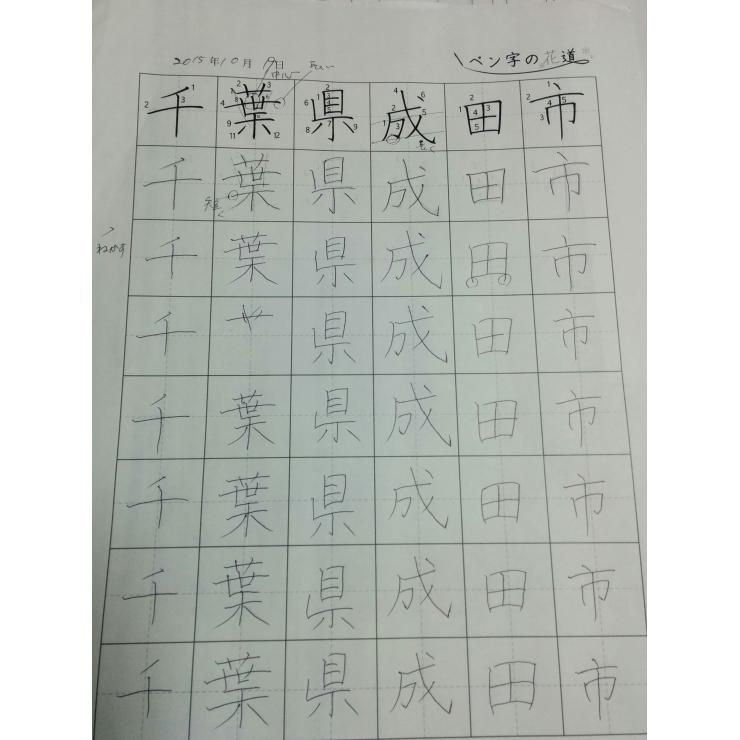 2015年10月19日
ペン字の花道
中心
千葉県成田市
千葉県成田市
ねかす
千葉県成田市
千 県成田市
千葉県成田市
千葉県成田市
千葉県成田市
千葉県成田市